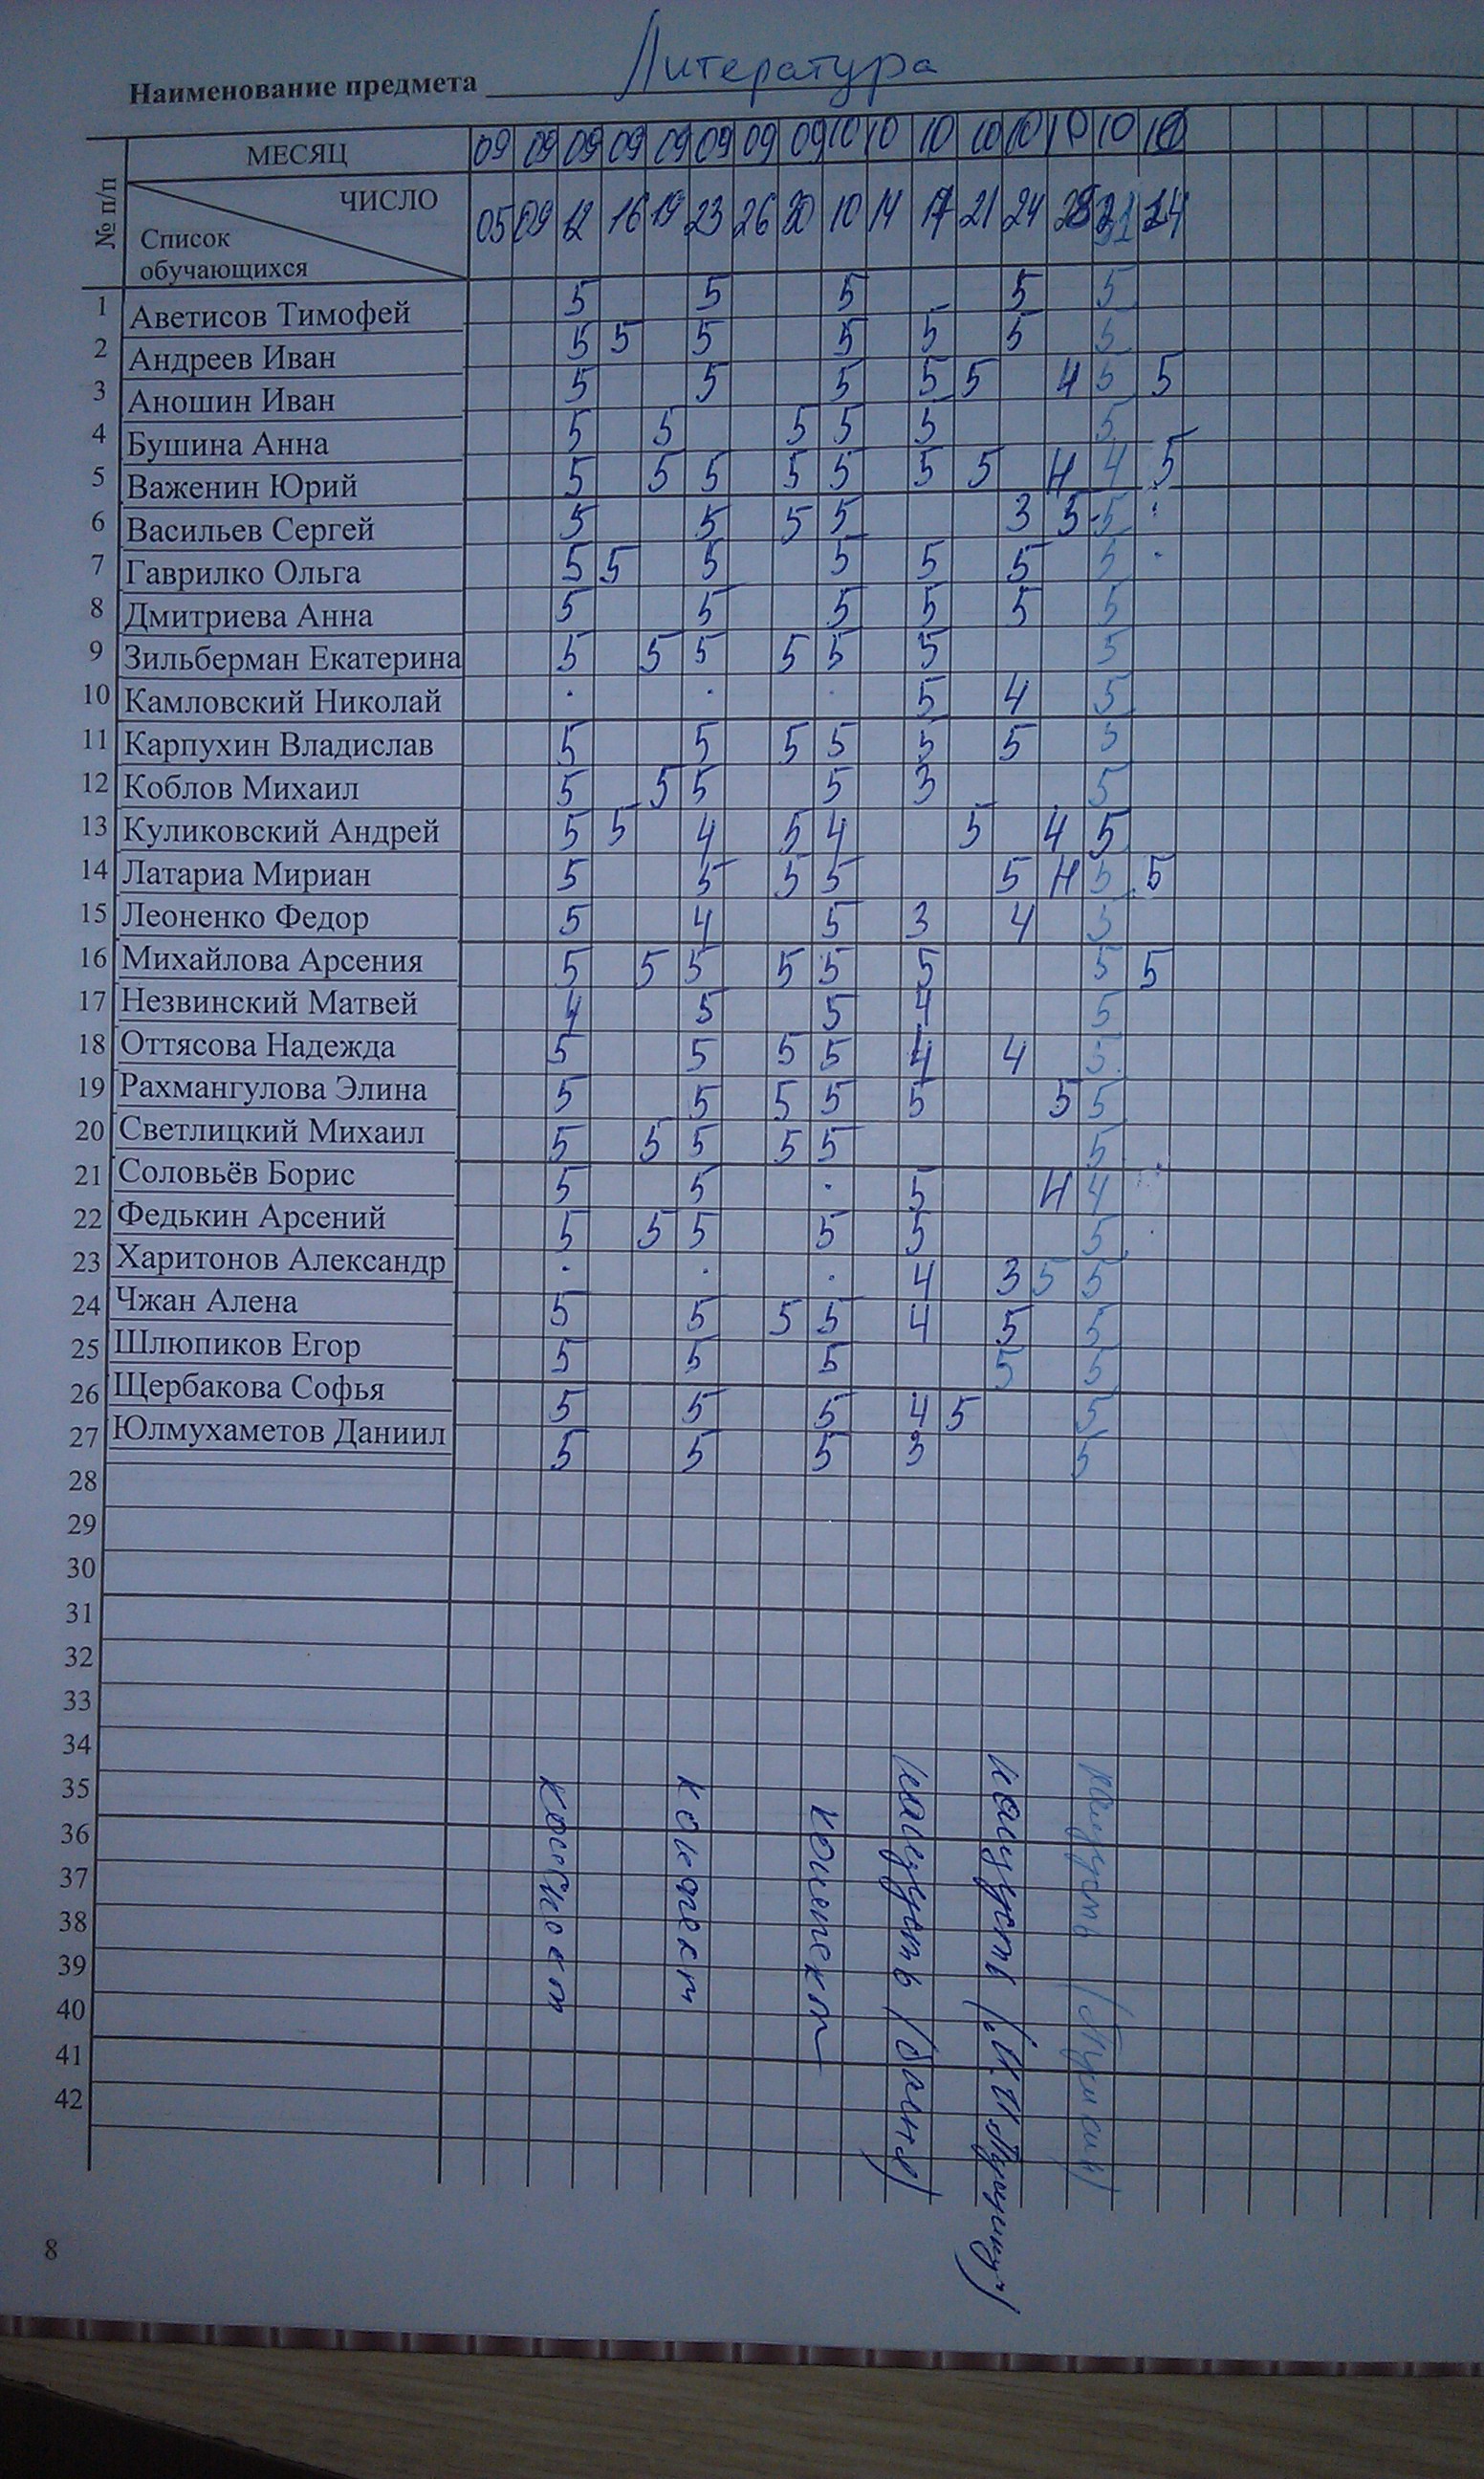 Наименование предмета Литература
№ п/п МЕСЯЦ 09 09 09 09 09 09 09 09 10 10 10 10 10 10 10 10
ЧИСЛО 05 09 12 16 19 23 26 30 10 14 17 21 24 28 31
Список
обучающихся
1 Аветисов Тимофей 5 5 5 5 5
2 Андреев Иван 5 5 5 5 5 5 5
3 Аношин Иван 5 5 5 5 5 4 5 5
4 Бушина Анна 5 5 5 5 5 5
5 Важенин Юрий 5 5 5 5 5 5 5 Н 4 5
6 Васильев Сергей 5 5 5 5 3 3 5
7 Гаврилко Ольга 5 5 5 5 5 5 5
8 Дмитриева Анна 5 5 5 5 5 5
9 Зильберман Екатерина 5 5 5 5 5 5 5
10 Камловский Николай . . . 5 4 5
11 Карпухин Владислав 5 5 5 5 5 5 5
12 Коблов Михаил 5 5 5 5 3 5
13 Куликовский Андрей 5 5 4 5 4 5 4 5
14 Латариа Мириан 5 5 5 5 5 Н 5 5
15 Леоненко Федор 5 4 5 3 4 5
16 Михайлова Арсения 5 5 5 5 5 5 5 5
17 Незвинский Матвей 4 5 5 4 5
18 Оттясова Надежда 5 5 5 5 4 4 5
19 Рахмангулова Элина 5 5 5 5 5 5 5
20 Светлицкий Михаил 5 5 5 5 5 5
21 Соловьёв Борис 5 5 . 5 Н 4
22 Федькин Арсений 5 5 5 5 5 5
23 Харитонов Александр . . . 4 3 5 5
24 Чжан Алена 5 5 5 5 4 5 5
25 Шлюпиков Егор 5 5 5 5 5
26 Щербакова Софья 5 5 5 4 5 5
27 Юлмухаметов Даниил 5 5 5 3 5
28
29
30
31
32
33
34
35
36
37
38
39
40
41
42
конспект
конспект
наизусть (басня)
наизусть (И.И. Пущину)
наизусть
8